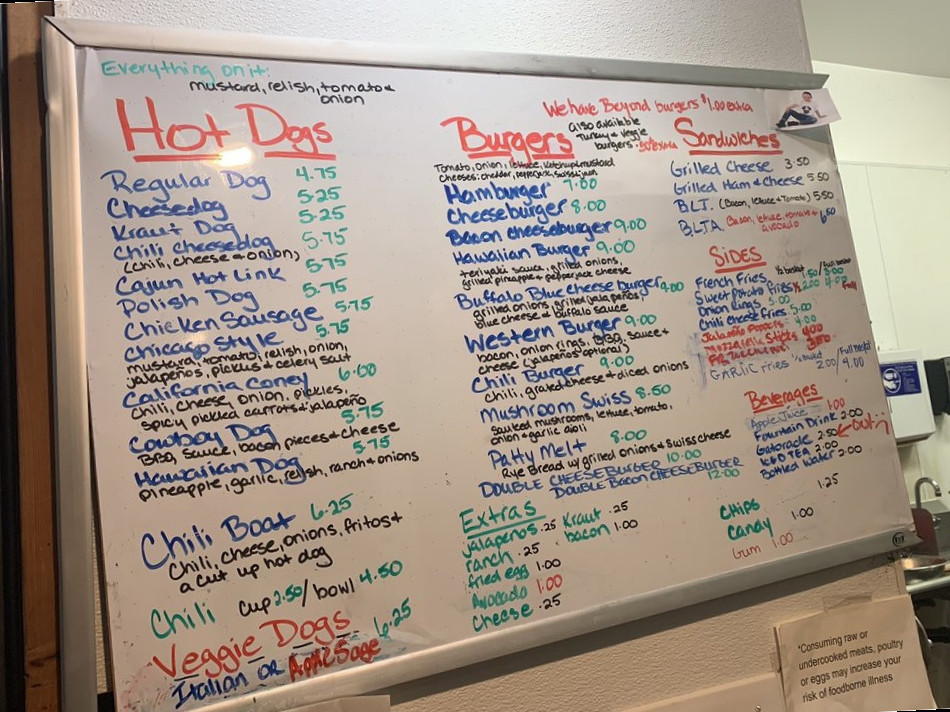 Everything on it:
mustard, relish, tomato &
onion
Hot Dogs
Regular Dog 4.75
Cheesedog 5.25
Kraut Dog 5.25
Chili cheesedog 5.75
(chili, cheese & onion)
Cajun Hot Link 5.75
Polish Dog 5.75
Chicken Sausage 5.75
Chicago Style 5.75
mustard, tomato, relish, onion,
jalapeños, pickles & celery salt
California Coney 6.00
chili, cheese, onion, pickles,
spicy pickled carrots & jalapeño
Cowboy Dog 5.75
BBQ, sauce, bacon pieces & cheese
Hawaiian Dog 5.75
pineapple, garlic, relish, ranch & onions
Chili Boat 6.25
Chili, cheese, onions, fritos &
a cut up hot dog
Chili cup 2.50/bowl 4.50
Veggie Dogs 6.25
Italian or Apple Sage
We have Beyond burgers $1.00 extra
Burgers
also available
Turkey & veggie
burgers .50 extra
Tomato, onion, lettuce, ketchup & mustard
Cheeses: cheddar, pepperjack, swiss
Hamburger 7.00
Cheeseburger 8.00
Bacon cheeseburger 9.00
Hawaiian Burger 9.00
teriyaki sauce, grilled onions,
grilled pineapple & pepperjack cheese
Buffalo Blue cheese burger 9.00
grilled onions, grilled jalapeños,
blue cheese & buffalo sauce
Western Burger 9.00
bacon, onion rings, BBQ, sauce &
cheese (jalapeños optional)
Chili Burger 9.00
chili, grated cheese & diced onions
Mushroom Swiss 8.50
sauteed mushrooms, lettuce, tomato,
onion & garlic aioli
Patty Melt 8.00
Rye Bread w/ grilled onions & Swiss cheese
DOUBLE CHEESEBURGER 10.00
DOUBLE Bacon CHEESEBURGER 12.00
Extras
jalapeños .25
ranch .25
fried egg 1.00
Avocado 1.00
Cheese .25
Kraut .25
bacon 1.00
Sandwiches
Grilled Cheese 3.50
Grilled Ham & Cheese 5.50
B.L.T. (Bacon, lettuce & Tomato) 5.50
B.L.T.A. Bacon, lettuce, tomato & 6.50
avocado
SIDES
½ basket / full basket
French Fries
Sweet Potato Fries
Onion Rings 5.00
Chili cheese fries 5.00
Jalapeño Poppers 4.00
Mozzarella Sticks
GARLIC FRIES ½ basket 2.00/Full Basket 4.00
Beverages
Apple Juice 1.00
Fountain Drink 2.00
Gatorade 2.50
ICED TEA 2.00
Bottled Water 2.00
CHIPS 1.25
Candy 1.00
Gum 1.00
*Consuming raw or
undercooked meats, poultry
or eggs may increase your
risk of foodborne illness